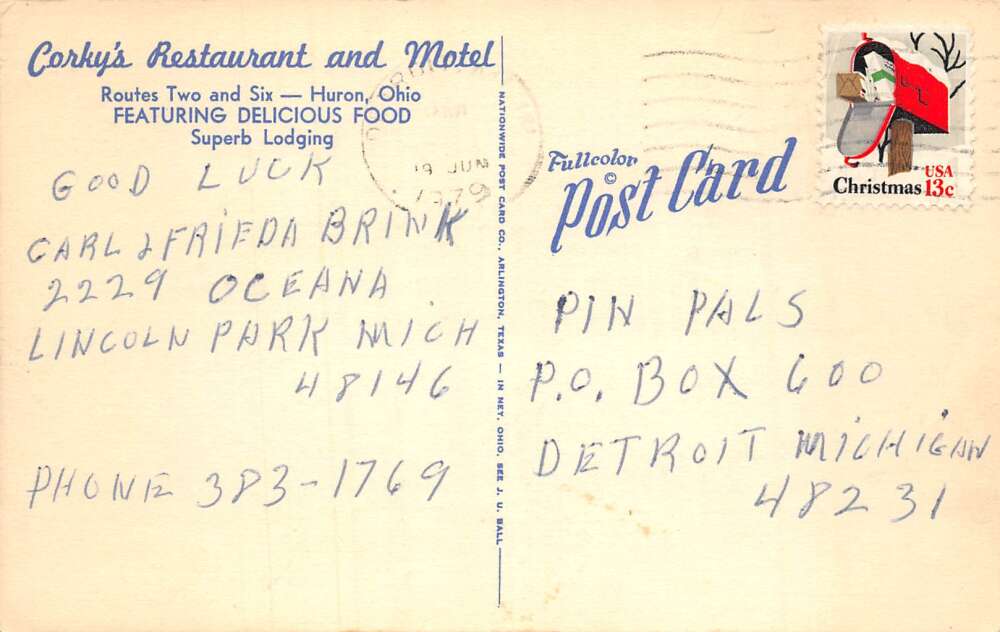 Corky's Restaurant and Motel
Routes Two and Six — Huron, Ohio
FEATURING DELICIOUS FOOD
Superb Lodging
GOOD LUCK
CARL & FRIEDA BRINK
2229 OCEANA
LINCOLN PARK MICH
48146
PHONE 383-1769
NATIONWIDE POST CARD CO., ARLINGTON, TEXAS — IN MET. OHIO, SEE J. U. BALL
19 JUN
Fullcolor
©
Post Card
USA
Christmas 13c
PIN PALS
P.O. BOX 600
DETROIT MICHIGAN
48231